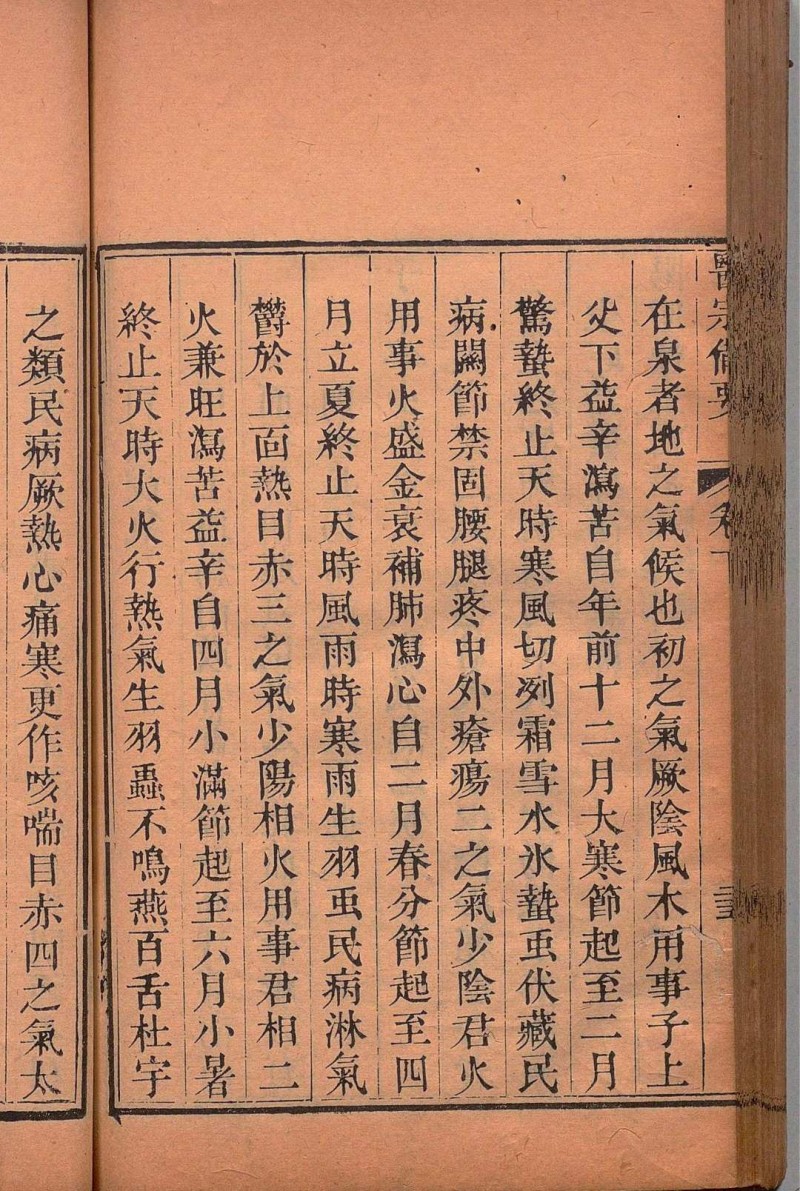 醫宗備要
卷下
在泉者地之氣候也初之氣厥陰風木用事子上
父下益辛瀉苦自年前十二月大寒節起至二月
驚蟄終止天時寒風切冽霜雪水氷蟄虫伏藏民
病關節禁固腰腿疼中外瘡瘍二之氣少陰君火
用事火盛金衰補肺瀉心自二月春分節起至四
月立夏終止天時風雨時寒雨生羽虫民病淋氣
欝於上面熱目赤三之氣少陽相火用事君相二
火兼旺瀉苦益辛自四月小滿節起至六月小暑
終止天時大火行熱氣生羽蟲不鳴燕百舌杜宇
之類民病厥熱心痛寒更作咳喘目赤四之氣太